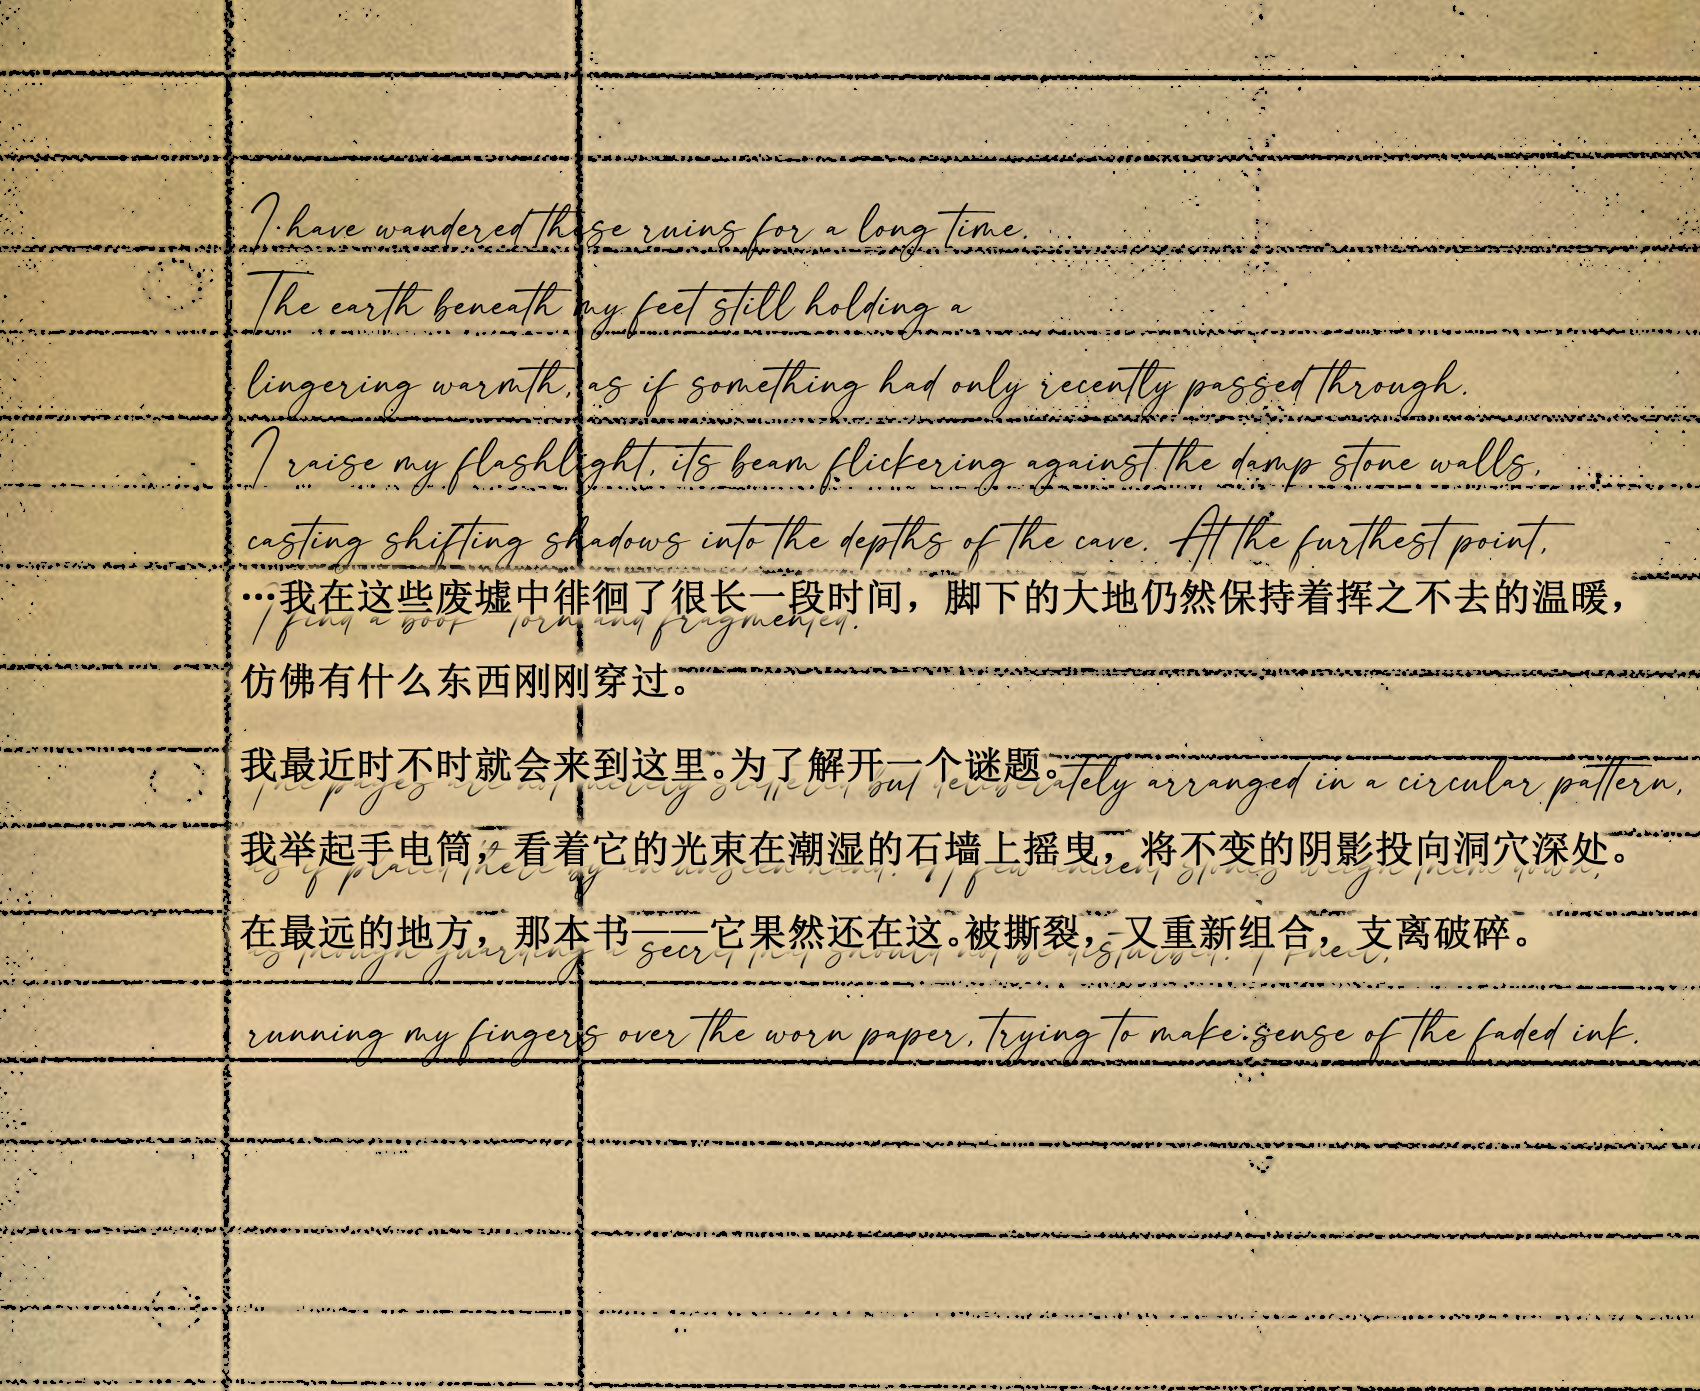 I have wandered these ruins for a long time.
The earth beneath my feet still holding a
lingering warmth, as if something had only recently passed through.
I raise my flashlight, its beam flickering against the damp stone walls,
casting shifting shadows into the depths of the cave. At the furthest point,
…我在这些废墟中徘徊了很长一段时间，脚下的大地仍然保持着挥之不去的温暖，
I find a book torn and fragmented.
仿佛有什么东西刚刚穿过。
我最近时不时就会来到这里。为了解开一个谜题。
The pages are not merely scattered but deliberately arranged in a circular pattern,
我举起手电筒，看着它的光束在潮湿的石墙上摇曳，将不变的阴影投向洞穴深处。
as if placed there by an unseen hand. A few ancient stones weigh them down,
在最远的地方，那本书——它果然还在这。被撕裂，又重新组合，支离破碎。
as though guarding a secret that should not be disturbed. I kneel,
running my fingers over the worn paper, trying to make sense of the faded ink.